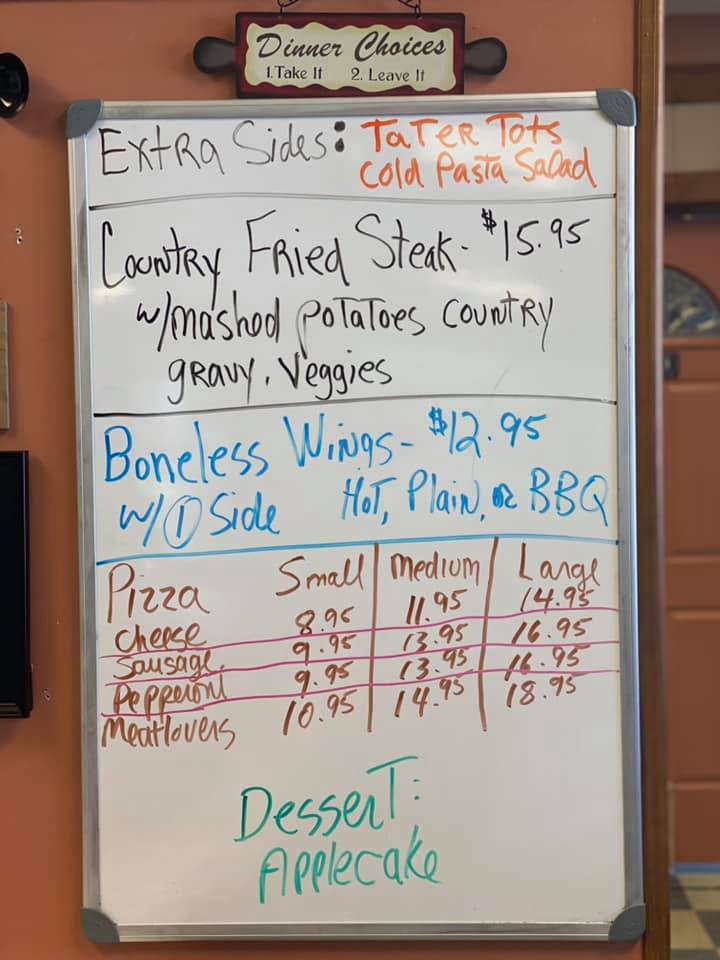 Dinner Choices
1. Take It 2. Leave It
Extra Sides: Tater Tots
Cold Pasta Salad
Country Fried Steak - $15.95
w/mashed potatoes country
gravy, Veggies
Boneless Wings - $12.95
w/ 1 Side Hot, Plain, or BBQ
Pizza Small Medium Large
Cheese 8.95 11.95 14.95
Sausage 9.95 13.95 16.95
Pepperoni 9.95 13.95 16.95
Meatlovers 10.95 14.95 18.95
Dessert:
Applecake